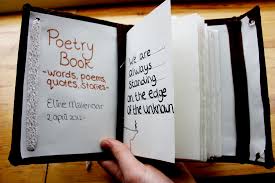 Poetry
Book
-words, poems,
quotes, stories-
2 april 2012
we are
always
standing
on the edge
of the unknown